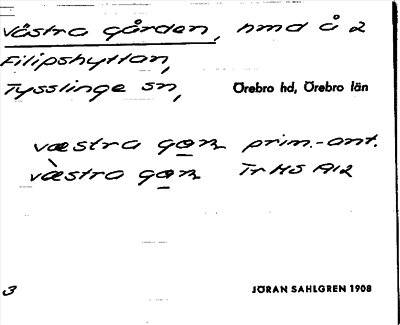 Västra gården, hmd å 2
Filipshyttan,
Tysslinge sn, Örebro hd, Örebro län
væstra prim.-ant.
væ̀stra Tr HS A12
3 JÖRAN SAHLGREN 1908